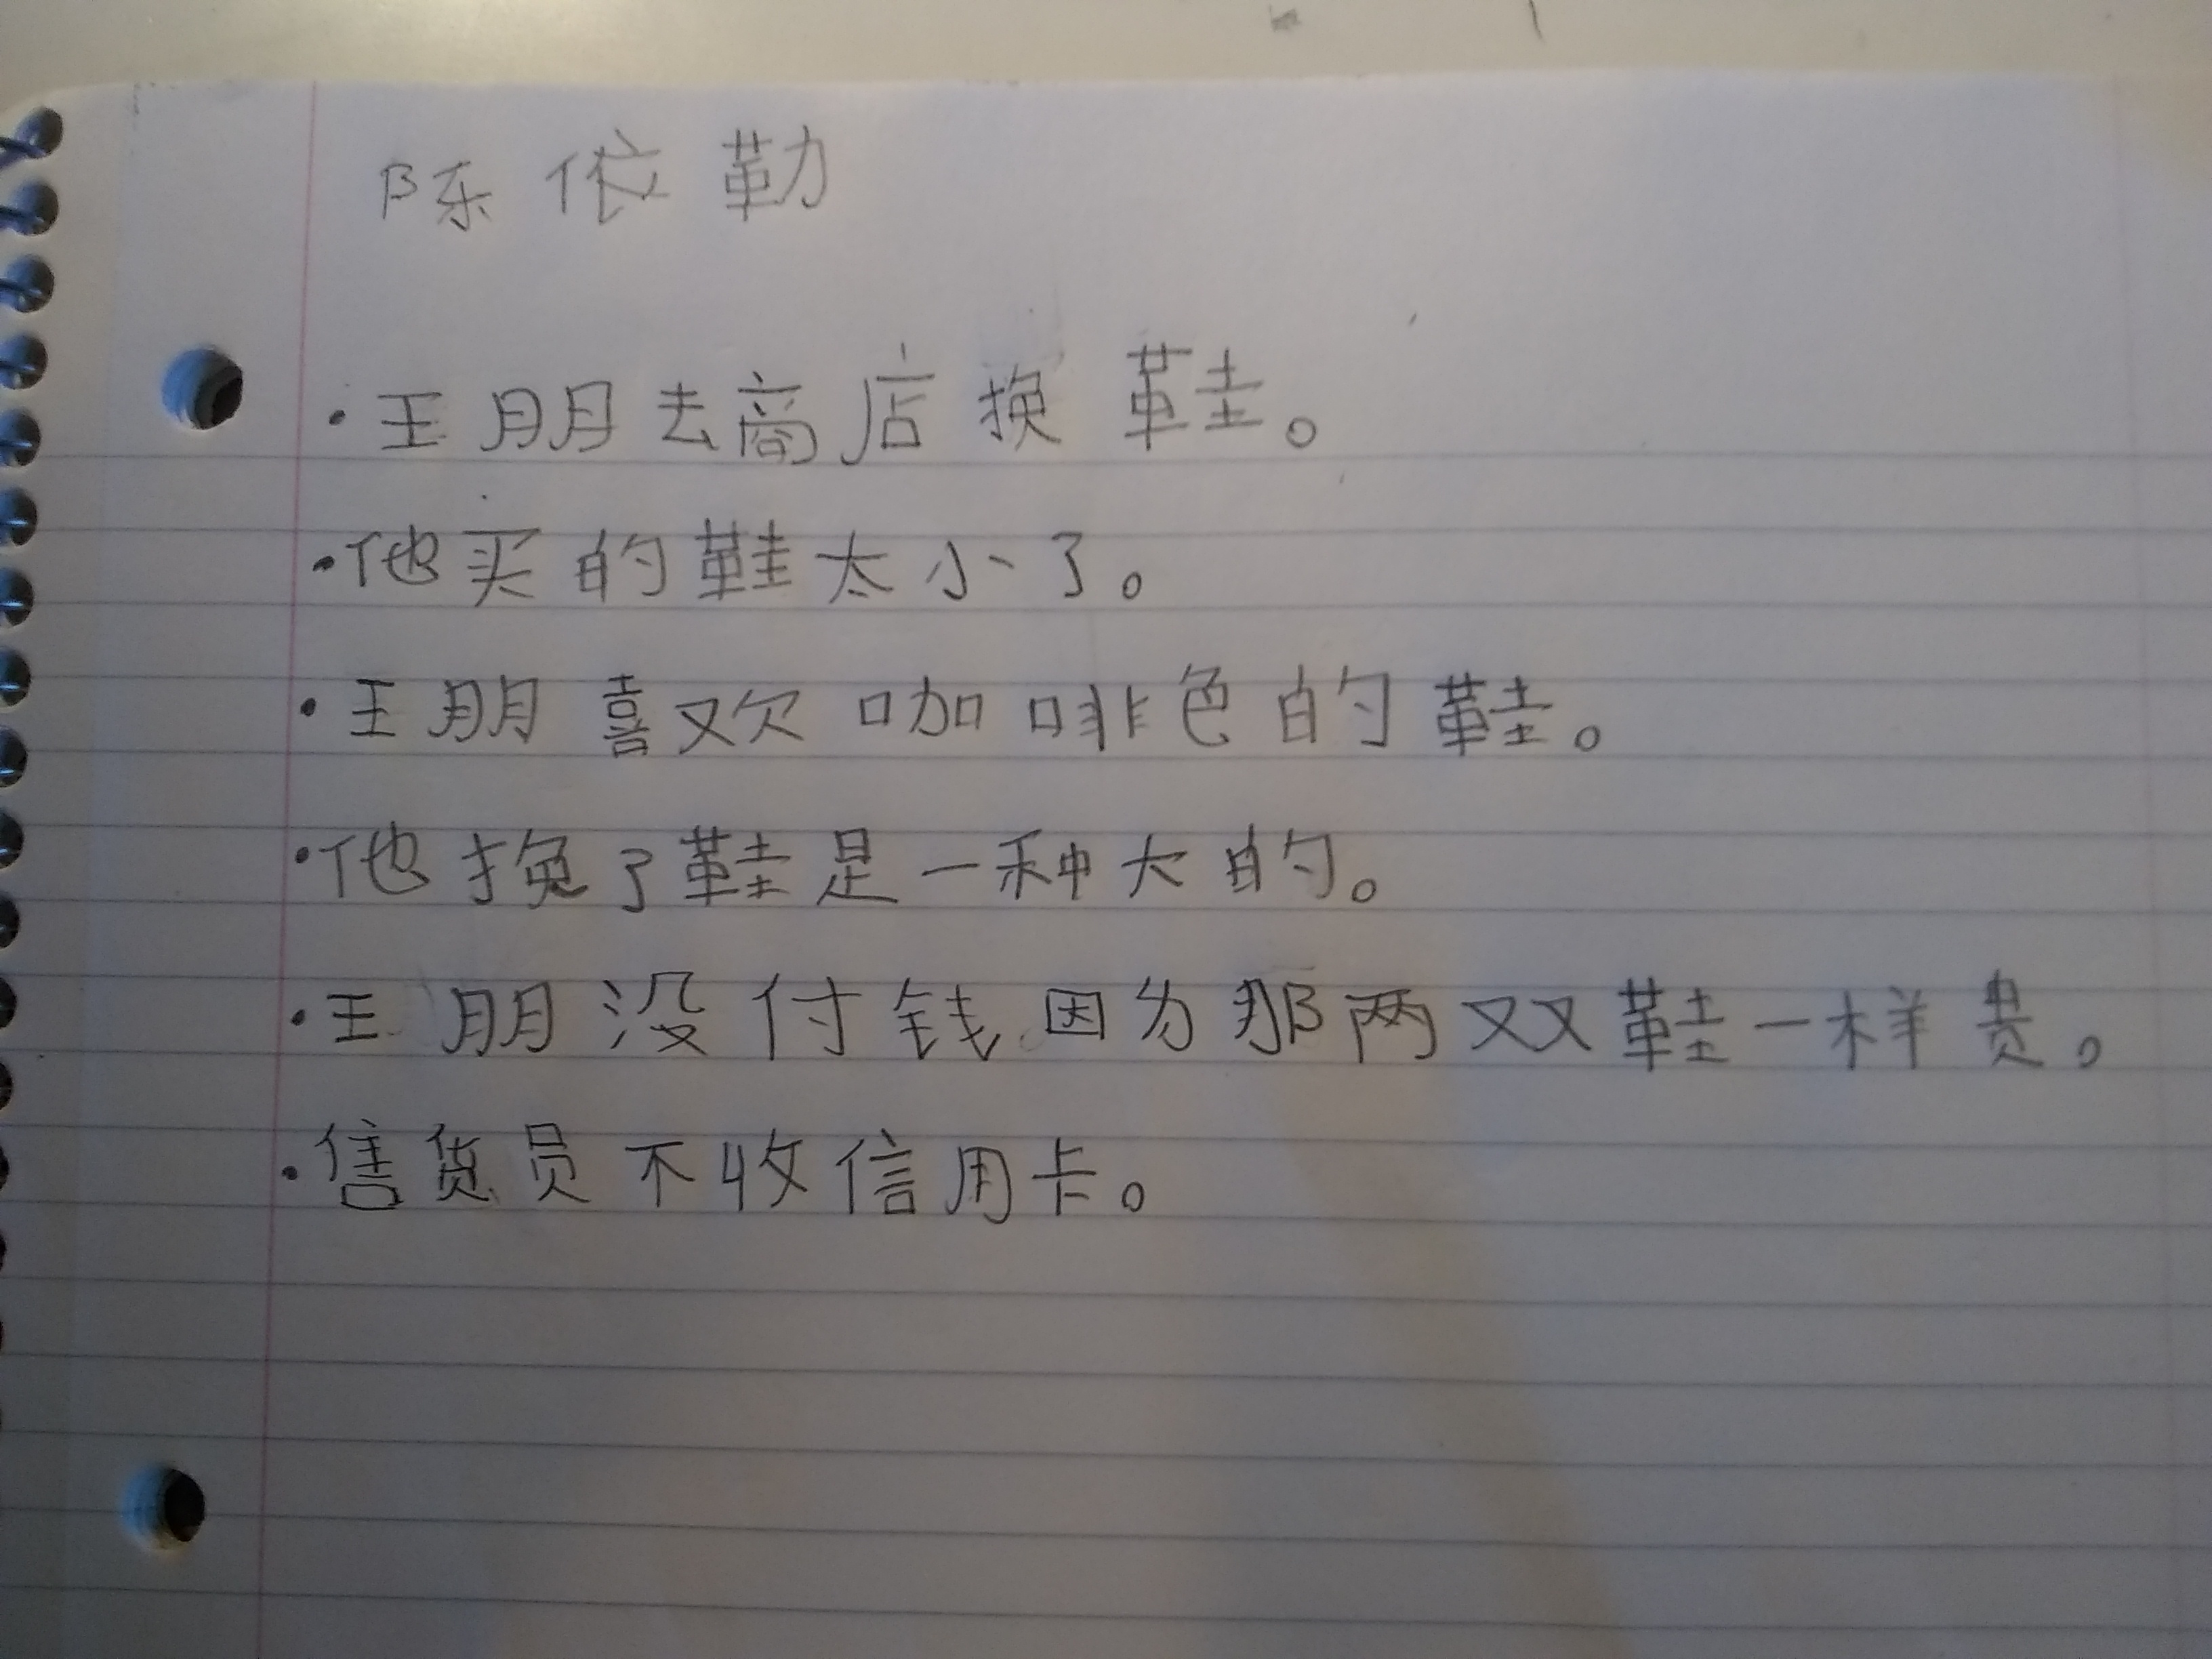 陈依勒
·王朋去商店换鞋。
·他买的鞋太小了。
·王朋喜欢咖啡色的鞋。
·他换了鞋是一种大的。
·王朋没付钱因为那两双鞋一样贵。
·售货员不收信用卡。